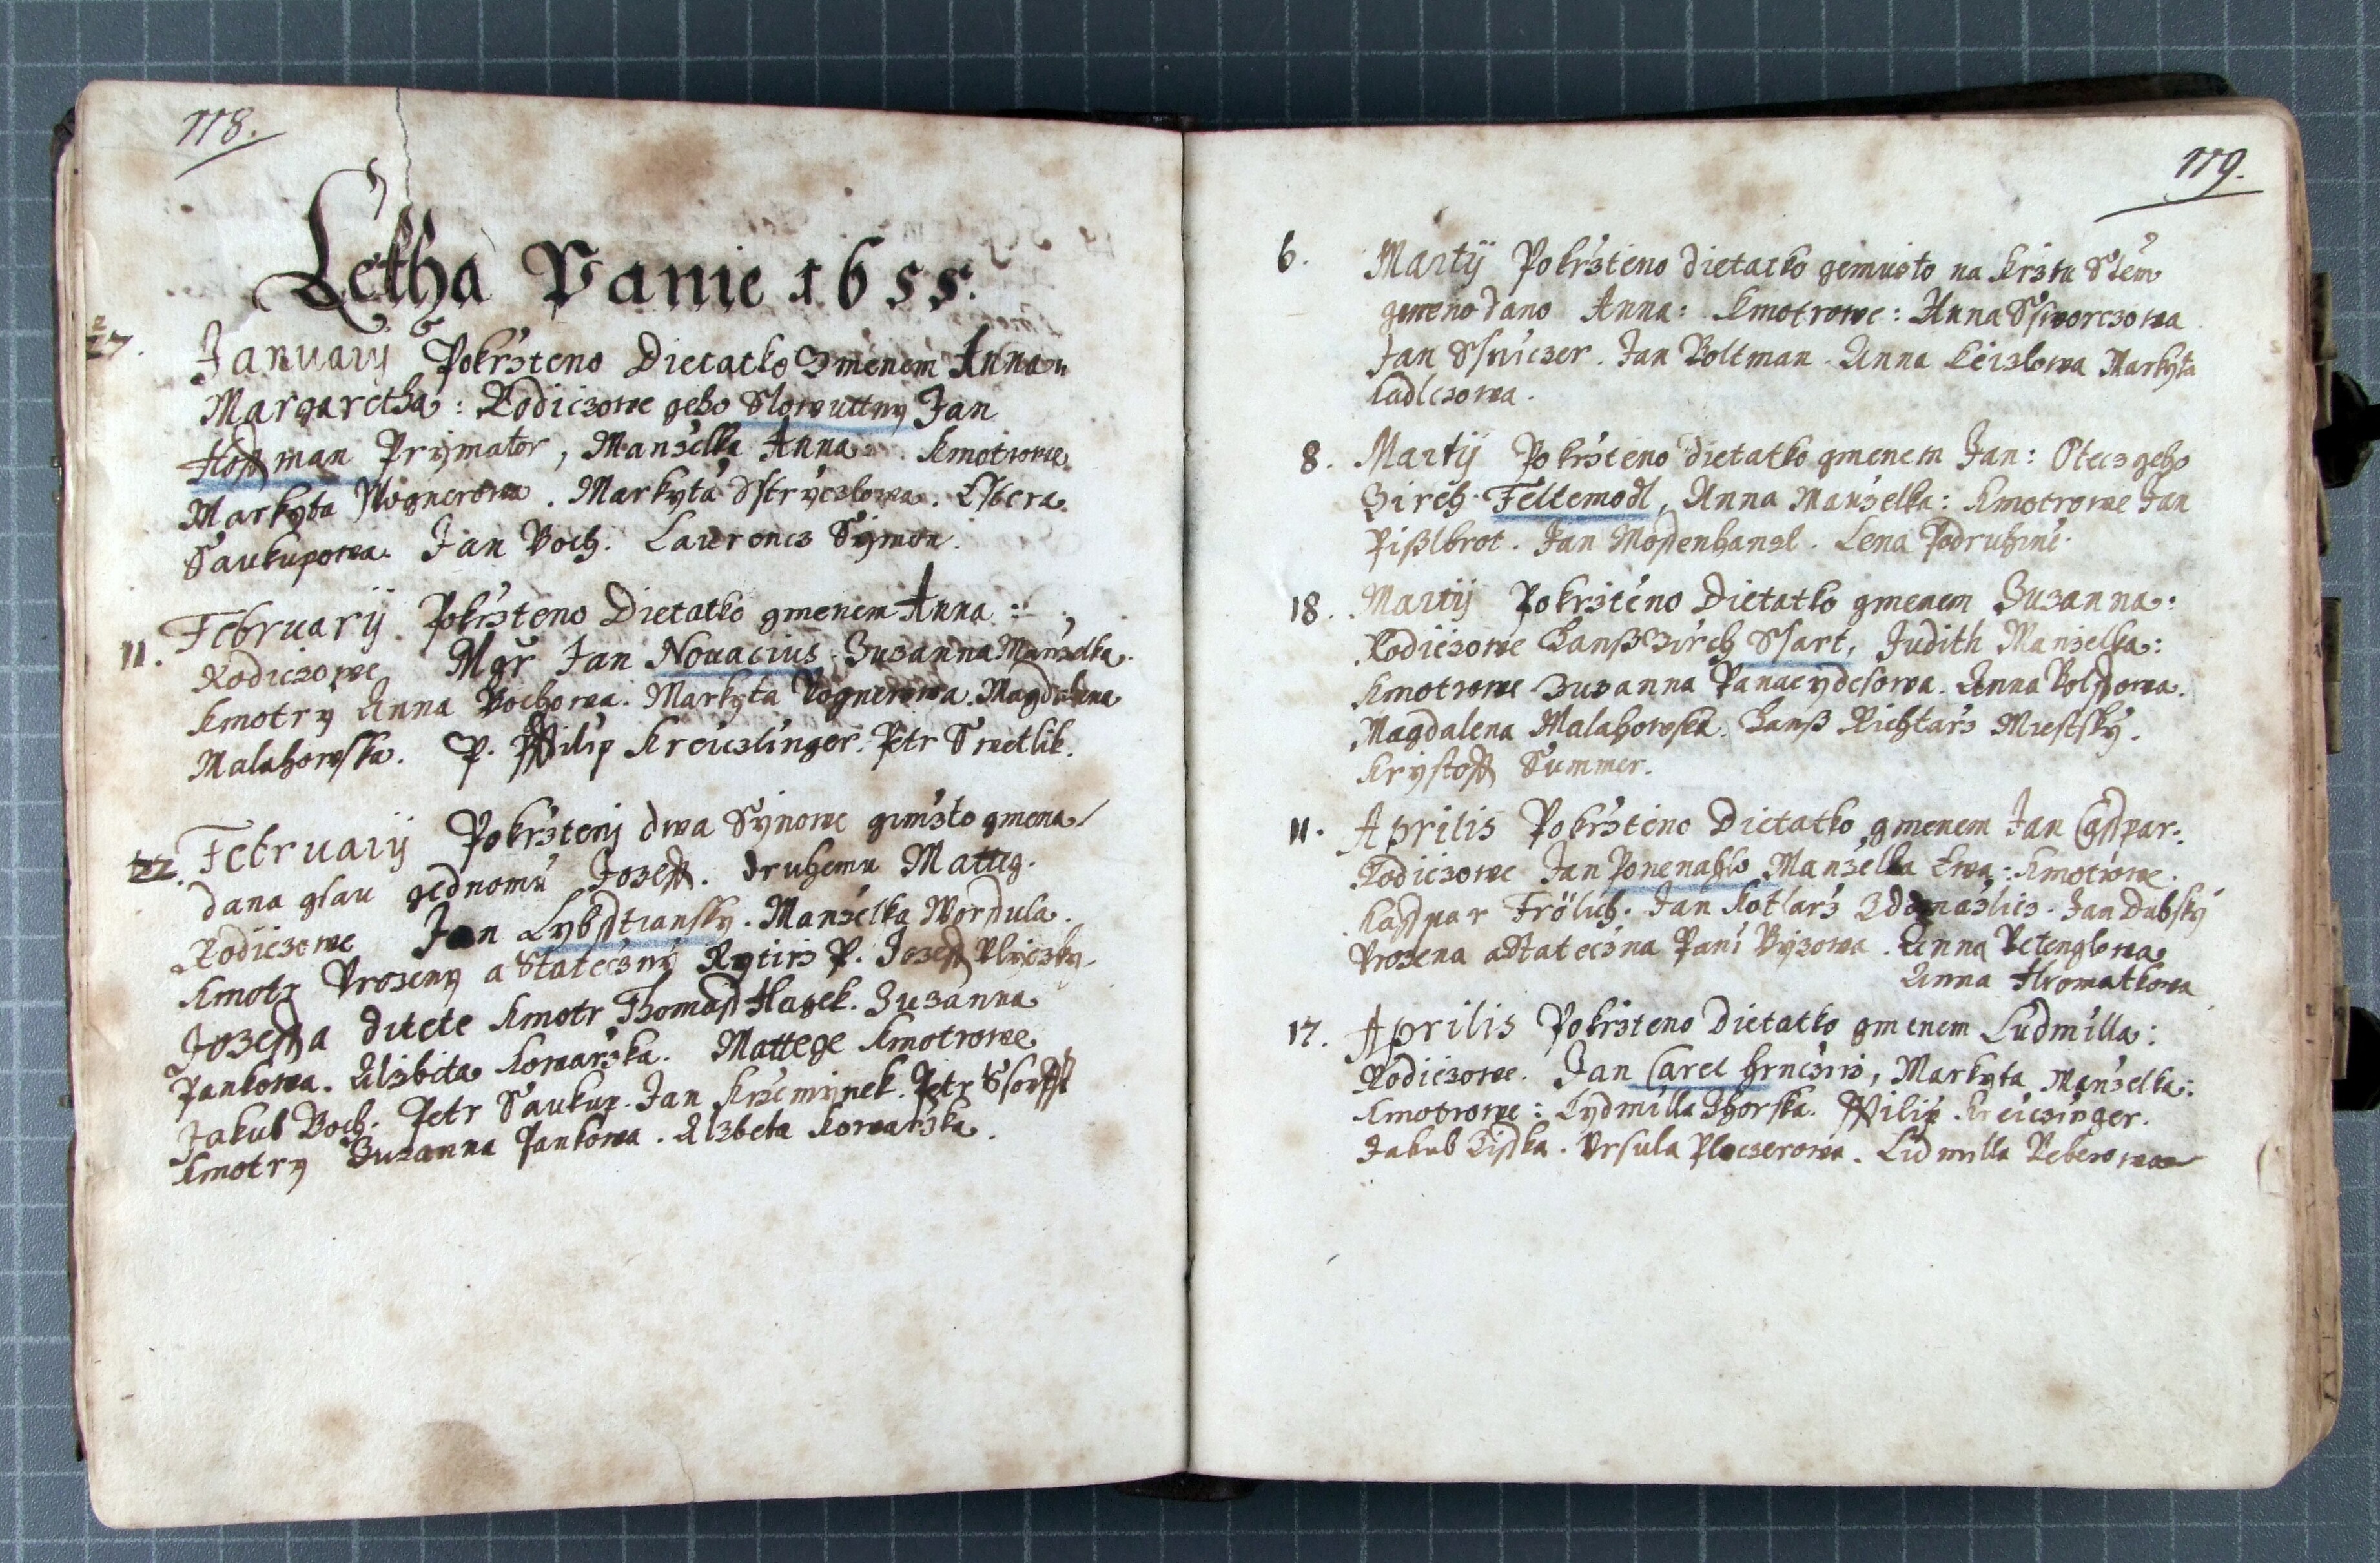 118.
Letha Panie 1655.
27. Januarij Pokrzteno Dietatko Zmenem Anna
Margaretha: Rodiczowe geho Slowuttny Jan
Hoffman Prymator, Manželka Anna. Kmotrowe
Markyta Wognerowa. Markyta Sstryczlowa. Estera
Saukupowa. Jan Boch. Laurencz Symon.
11. Februarij Pokrzteno Dietatko gmenem Anna:
Rodiczowe Mgr Jan Nouacius. Zuzanna Manzelka.
Kmotry Anna Bochowa. Markyta Wognerowa. Magdalena
Malahowska. P. Ffilip Kreiczinger. Petr Swetlik.
Februarij Pokrzteny dwa Synowe gimžto gmena
dana gsau gednomu Jozeff. druhemu Matteg.
Rodiczowe Jan . Manželka Mordula.
Kmotr Vrozeny a Stateczny Rytirz P. Jozeff Vlyczky.
Jozeffa ditete Kmotr Thomass Hagek. Zuzanna
Jankowa. Alzbieta Kowarzka. Mattege Kmotrowe
Jakub Boch. Petr Saukup. Jan Krzeminek. Petr
Kmotry Zuzanna Jankowa. Alzbeta Kowarzka.
119.
6. Martij Pokrzteno Dietatko gemužto na Krztu Stem
gmeno dano Anna: Kmotrowe: Anna Ssworczowa
Jan . Jan Boltman. Anna Leizlowa Markyta
Kadlczowa.
8. Martij Pokrzteno dietatko gmenem Jan: Otecz geho
Girch Feltemodl, Anna Manželka: Kmotrowe Jan
Pißlbrot. Jan . Lena Podruhině.
18. Martij Pokrzteno Dietatko gmenem Zuzanna:
Rodiczowe Hanß Girch Ssart, Judith Manzelka:
Kmotrowe Zuzanna . Anna .
Magdalena Malahowska. Hanß Richtarz Miestsky.
Krystoff Summer.
11. Aprilis Pokrzteno Dietatko gmenem Jan Casspar:
Rodiczowe Jan Manželka Ewa: Kmotrowe.
Kasspar Frölich. Jan Kotlarz Zdomažlicz. Jan Dubsky
Vrozena a Stateczna Pani Byzowa. Anna Petenglowa
Anna Hromatkowa
17. Aprilis Pokrzteno Dietatko gmenem Ludmilla:
Rodiczowe. Jan Carel Hrnczirz, Markyta Manzelka:
Kmotrowe: Lydmilla Zhorska. Ffilip Kreiczinger.
Jakub Zisska. Vrsula Placzerowa. Lidmilla Weberowa